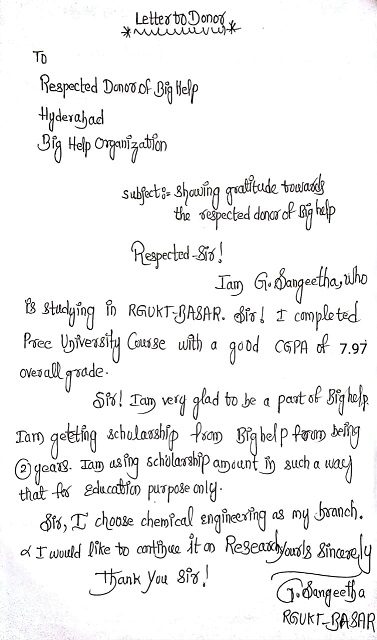 Letter to Donor
To
Respected Donor of Big Help
Hyderabad
Big Help Organization
subject:- showing gratitude towards
the respected donor of Big help
Respected Sir!
Iam G. Sangeetha, who
is studying in RGUKT-BASAR. Sir! I completed
Pree University Course with a good CGPA of 7.97
overall grade.
Sir! Iam very glad to be a part of Big help.
Iam getting scholarship from Big help from being
2 years. Iam using scholarship amount in such a way
that for education purpose only.
Sir, I choose chemical engineering as my branch.
& I would like to continue it on Research
Yours sincerely
Thank You Sir!
G. Sangeetha
RGUKT-BASAR